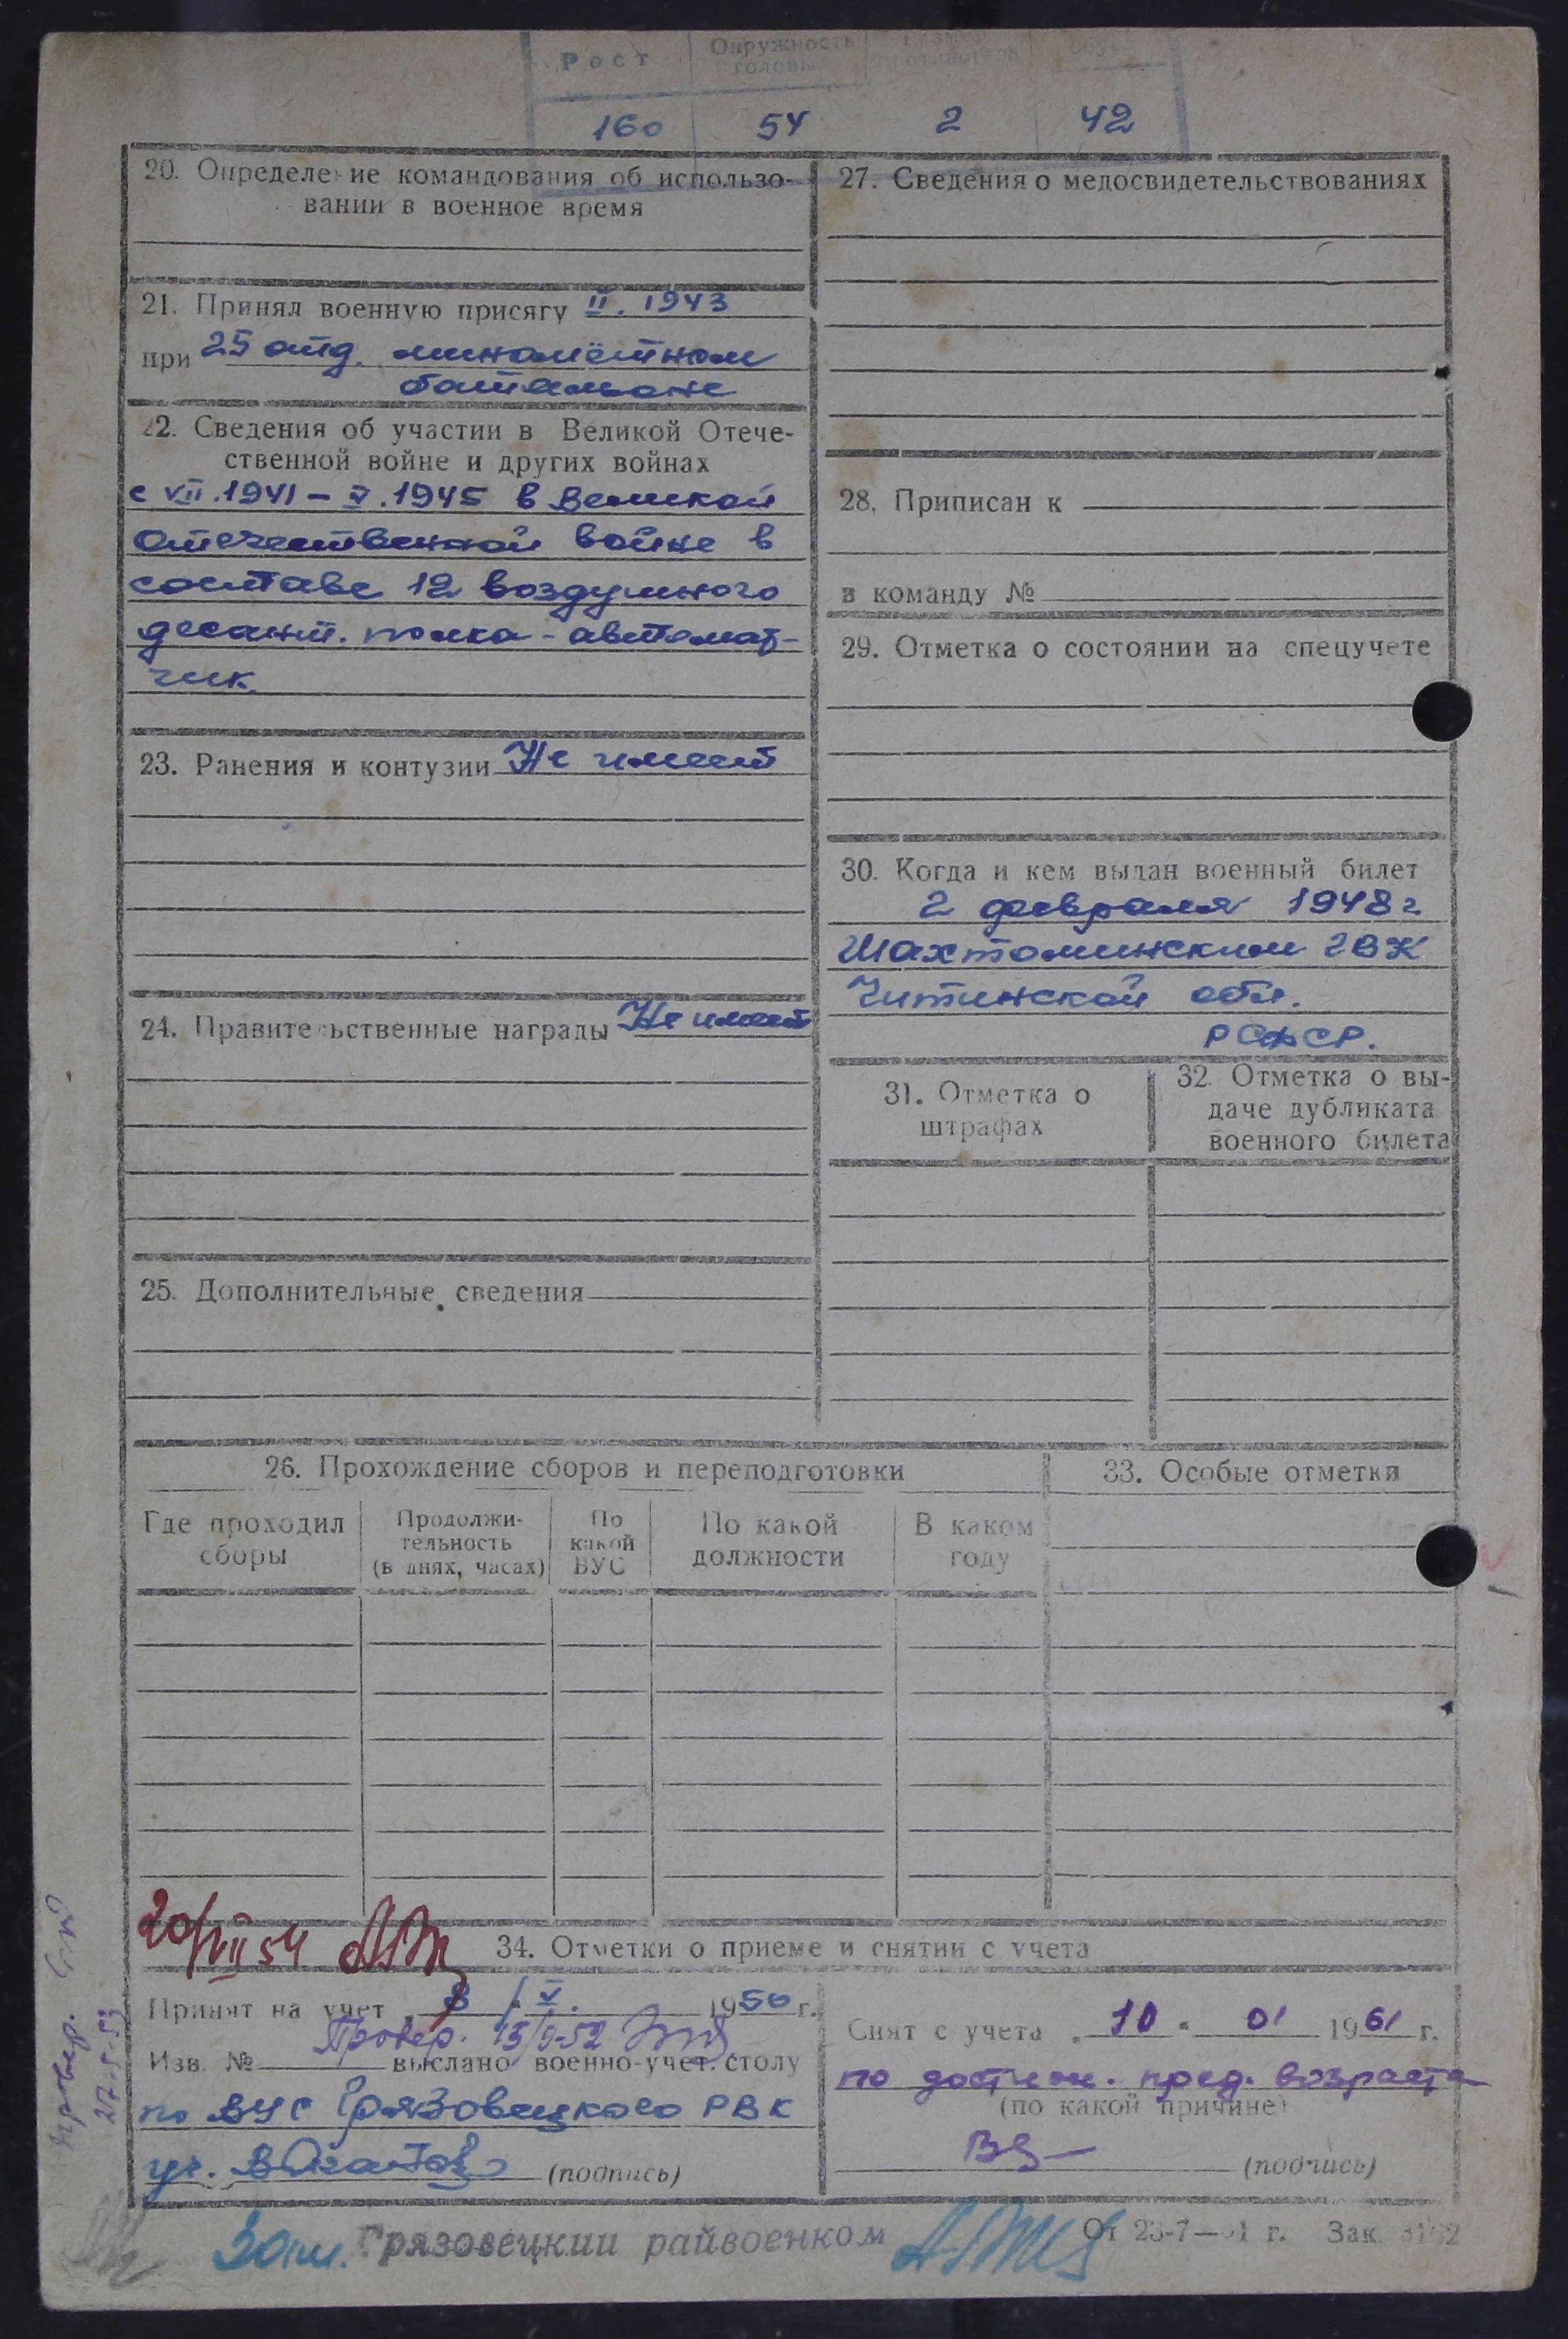 Рост Окружность головы Размер противогаза обув
160 54 2 42
20. Определение командования об использо-
вании в военное время
21. Принял военную присягу II. 1943
при 25 отд. миномётном
батальоне
22. Сведения об участии в Великой Отече-
ственной войне и других войнах
с VII.1941 – V.1945 в Великой
Отечественной войне в
составе 12 воздушного
десант. полка - автомат-
чик.
23. Ранения и контузии Не имеет
24. Правительственные награды Не имеет
25. Дополнительные сведения
27. Сведения о медосвидетельствованиях
28. Приписан к
в команду №
29. Отметка о состоянии на спецучете
30. Когда и кем выдан военный билет
2 февраля 1948 г
Шахтоминским РВК
Читинской обл.
РСФСР.
31. Отметка о
штрафах
32. Отметка о вы-
даче дубликата
военного билета
26. Прохождение сборов и переподготовки
Где проходил
сборы
Продолжи-
тельность
(в днях, часах)
По
какой
ВУС
По какой
должности
В каком
году
33. Особые отметки
20/VII 54
34. Отметки о приеме и снятии с учета
Принят на учет 8 / V. 1950 г.
Провер. 15/V-52
Изв. № выслано военно-учет. столу
по ВУС Грязовецкого РВК
(подпись)
Снят с учета „10" 01 1961 г.
по достиж. пред. возраста
(по какой причине)
(подпись)
Провер.
27.5.53
Грязовецкий райвоенком
От 23-7—51 г. Зак.